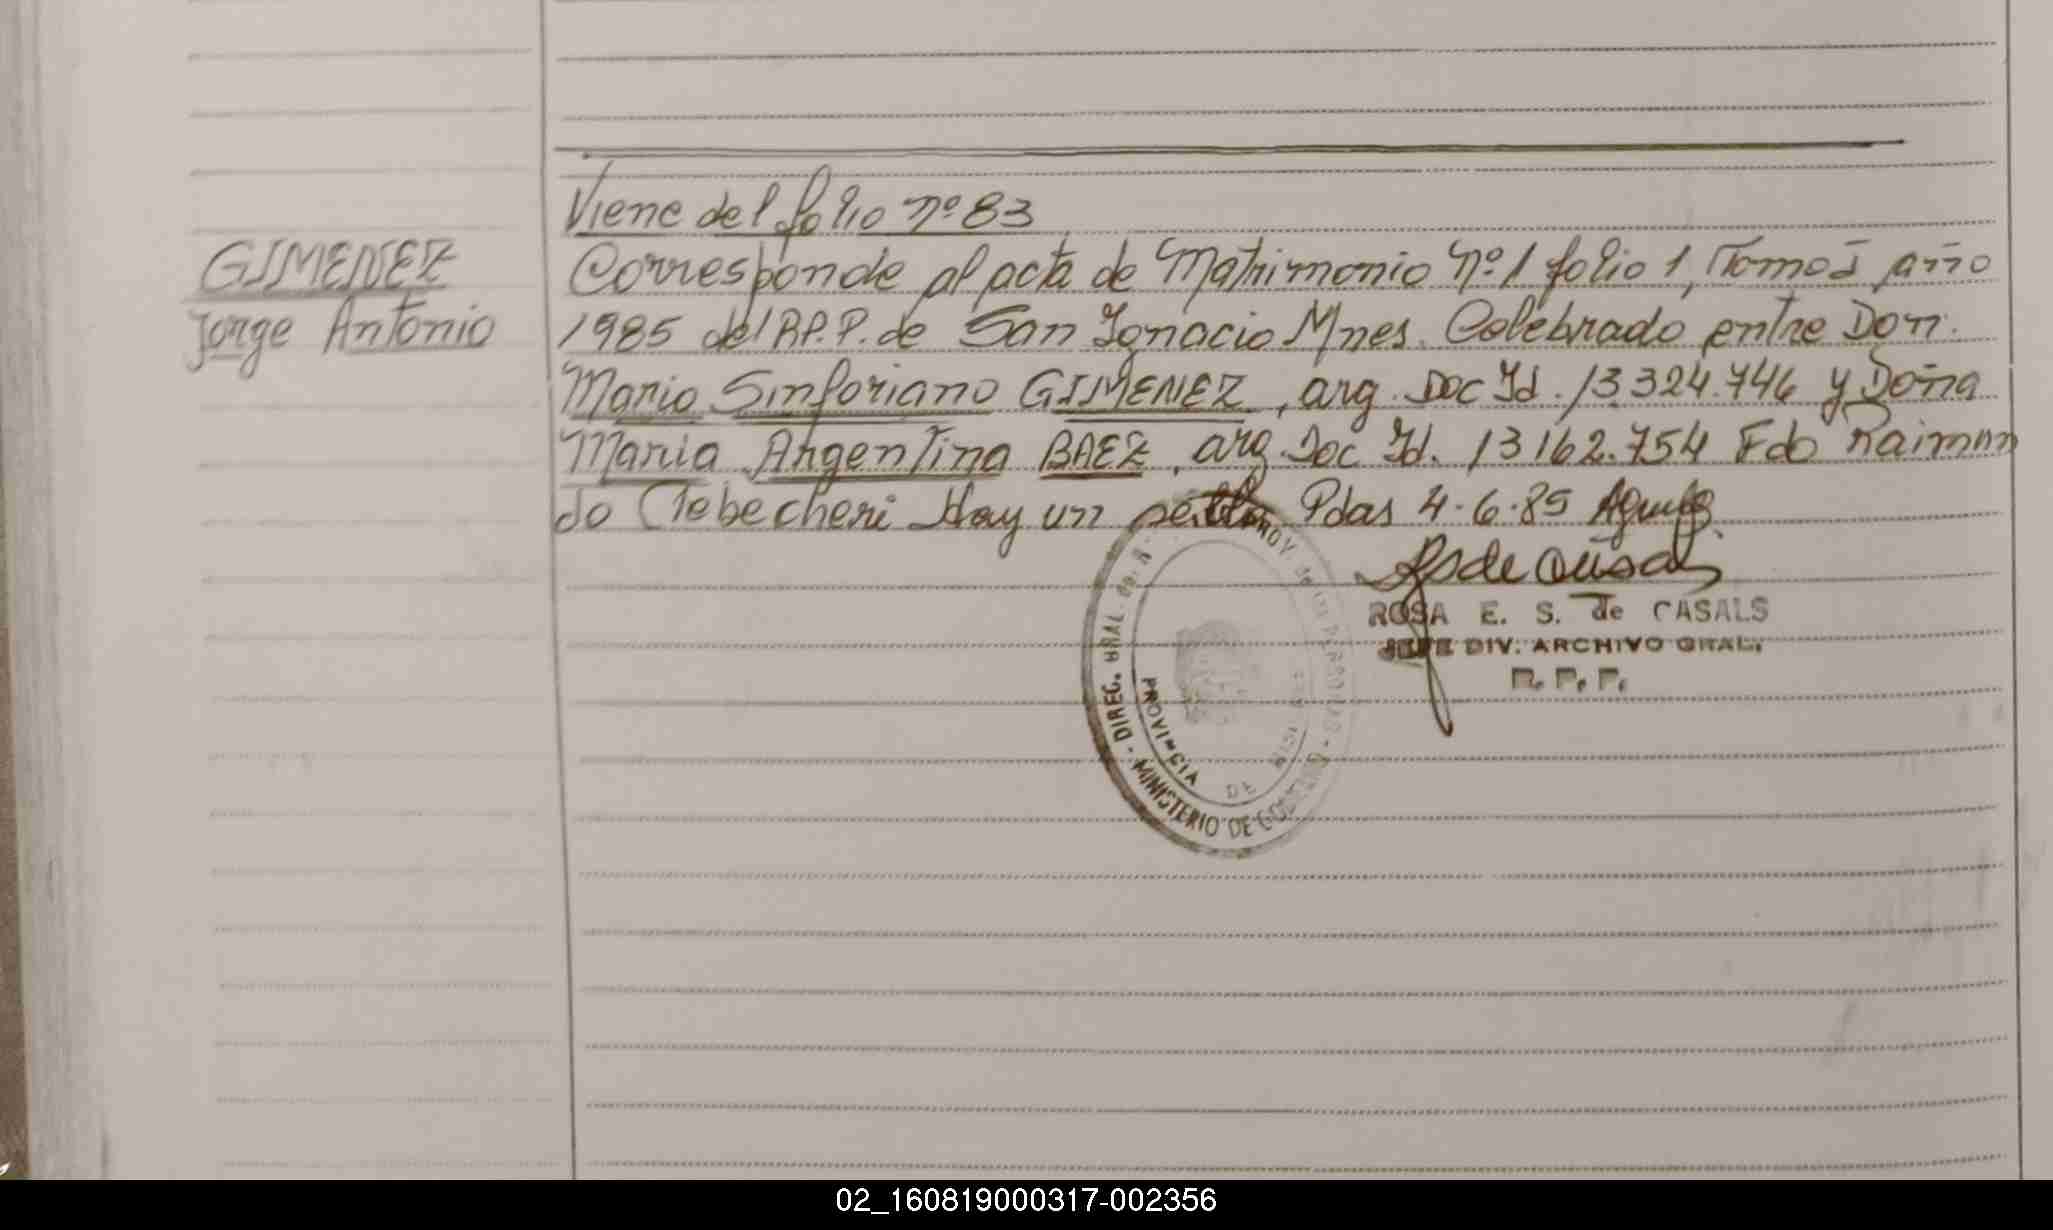 Viene del folio nº 83
GIMENEZ
Jorge Antonio
Corresponde al acta de Matrimonio Nº 1 folio 1, Tomo año
1985 del R.P.P. de San Ignacio Mnes. Celebrado entre Don.
Mario Sinforiano GIMENEZ, arg. Doc Id. 13.324.746 y Doña
Maria Argentina BAEZ, arg. Doc Id. 13162.754 Fdo Raimun
do Hay un sello. Pdas 4.6.85
ROSA E. S. de CASALS
JEFE DIV. ARCHIVO GRAL.
R. P. P.
DIREC. GRAL. PROV. PERSONAS - MINISTERIO DE GOBIERNO -
PROVINCIA DE MISIONES
02_160819000317-002356